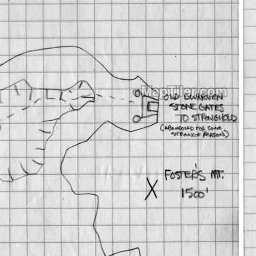 MapTiler.com
OLD DWARVEN
STONE GATES
TO STRONGHOLD
(ABANDONED FOR SOME
STRANGE REASON)
X
FOSTER'S MT.
1500'